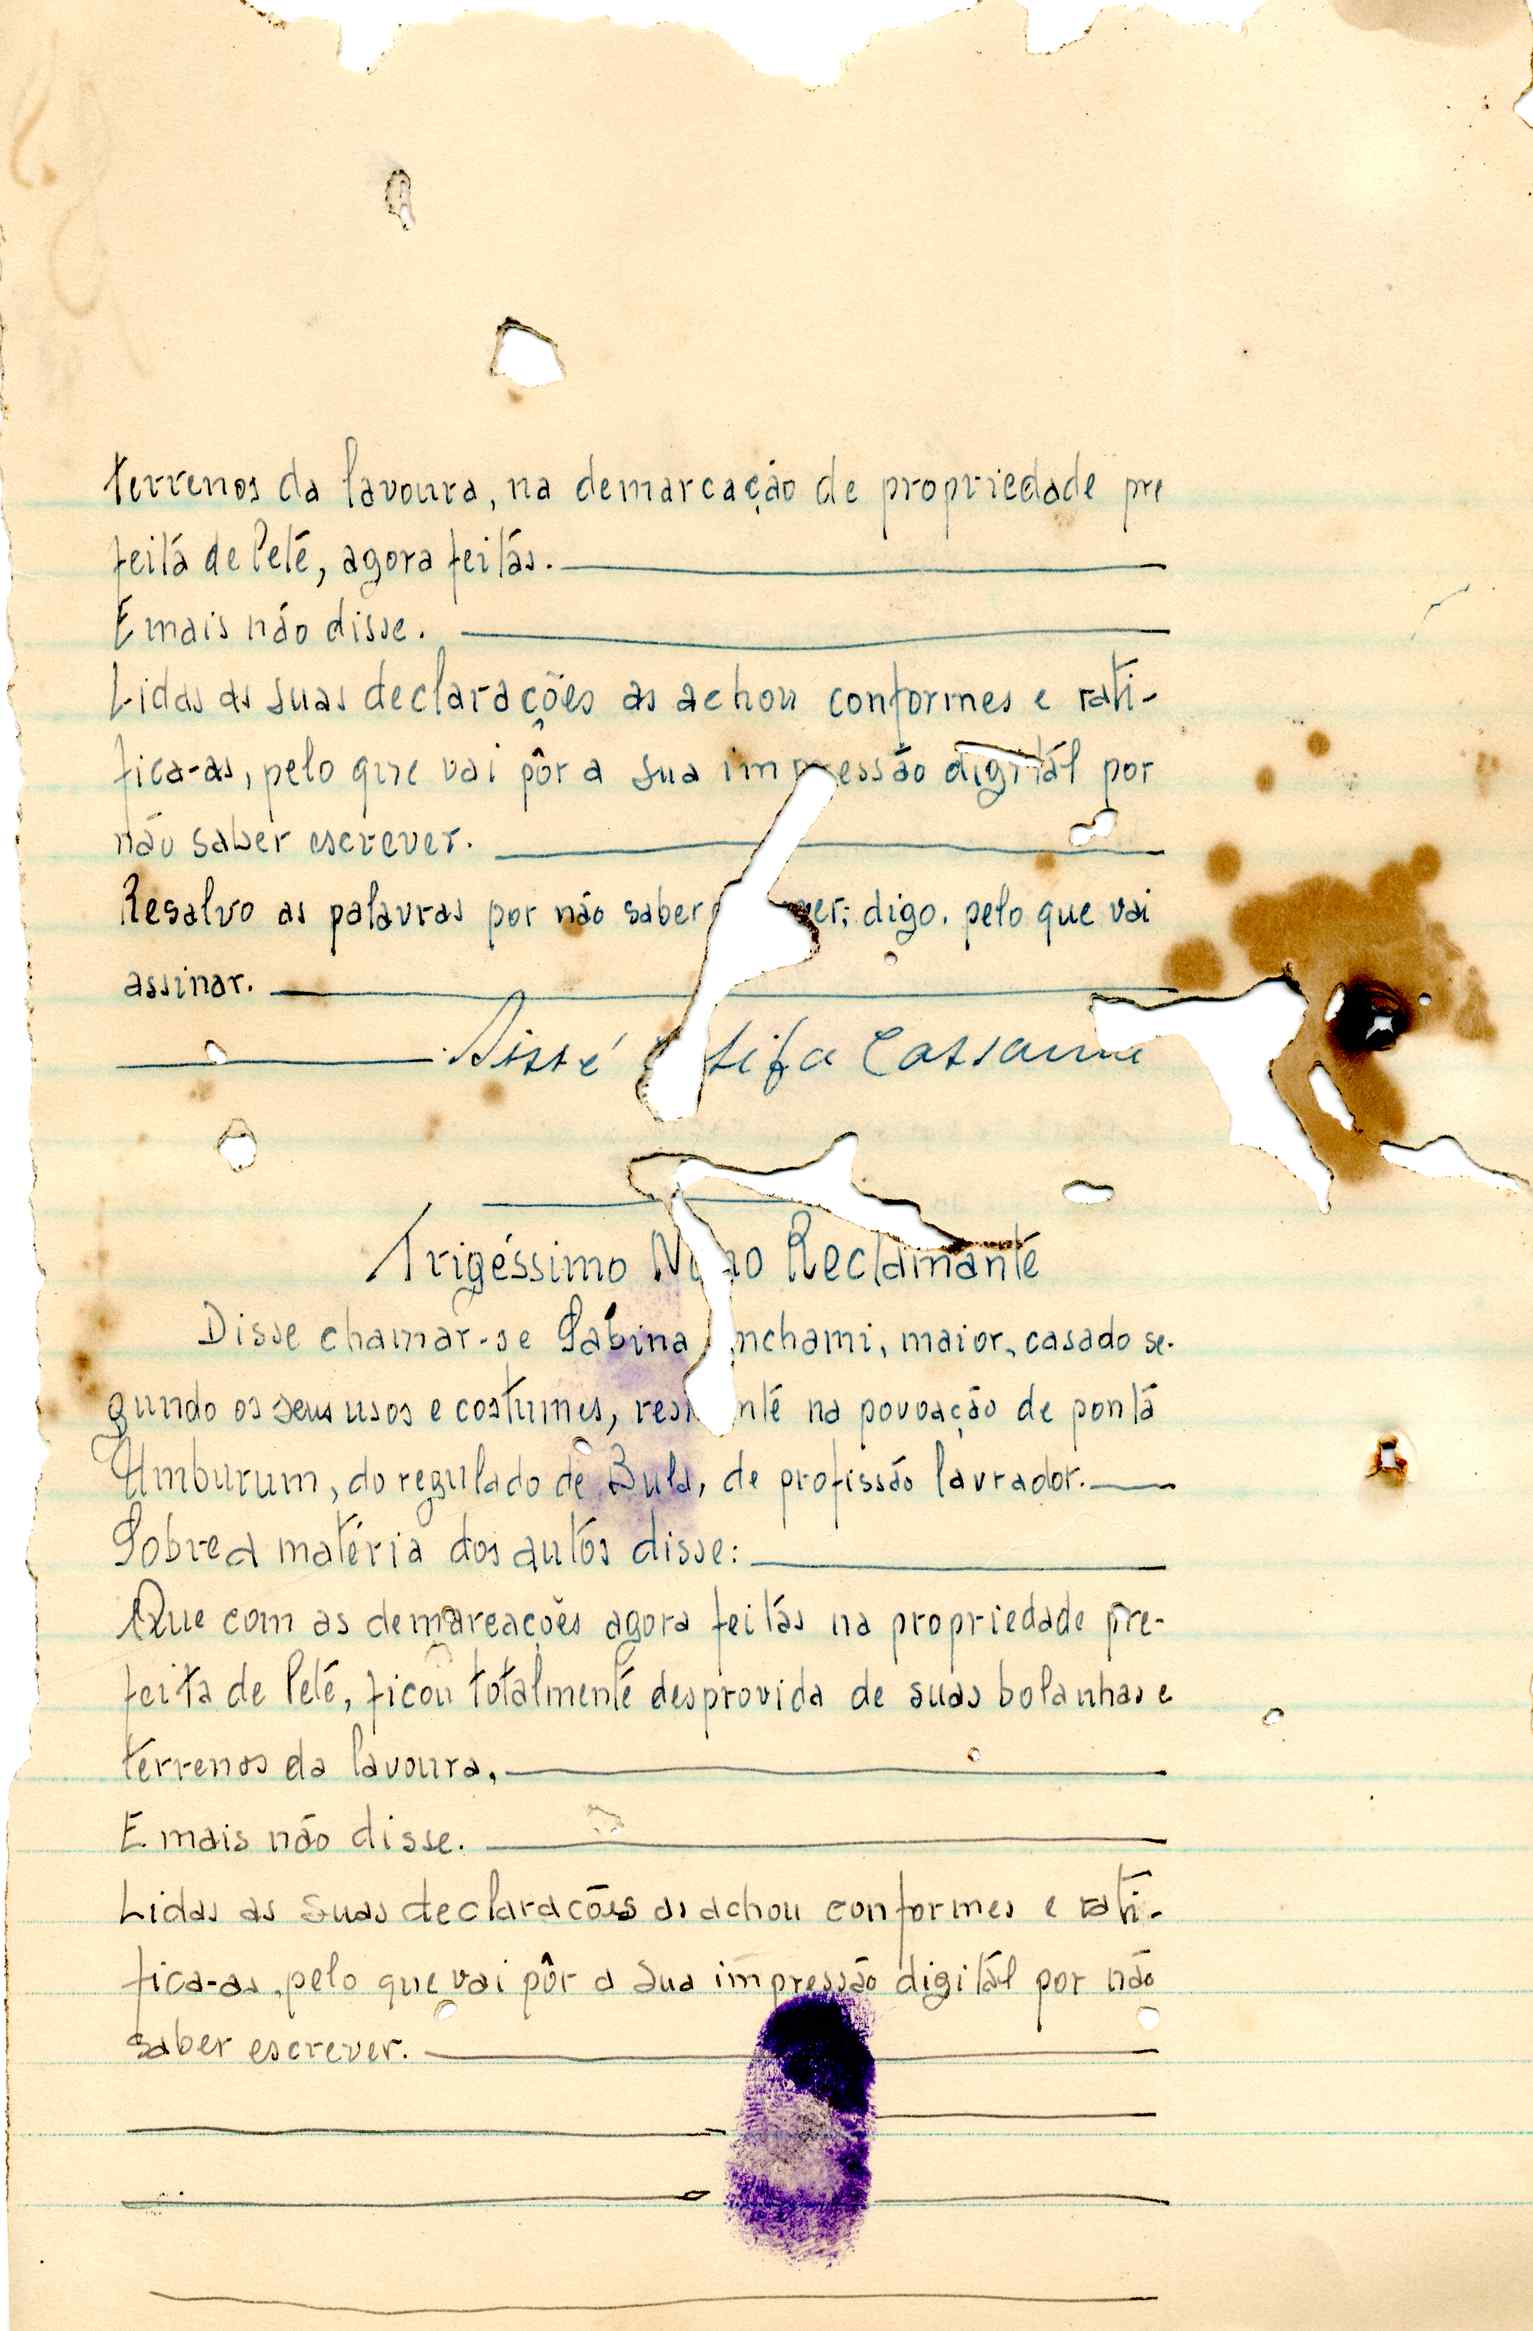 terrenos da lavoura, na demarcação de propriedade pre
feitá de Peté, agora feitás.
E mais não disse.
Lidas as suas declarações as achou conformes e rati-
fica-as, pelo que vai pôr a sua impressão digitál por
não saber escrever.
Resalvo as palavras por não saber ver; digo. pelo que vai
assinar.
Cassama
Trigéssimo Nono Reclamanté
Disse chamar-se Sábina nchami, maior, casado se-
gundo os seus usos e costumes, residenté na povoação de pontá
Umburum, do regulado de Bula, de profissão lavrador.
Sobre a matéria dos autós disse:
Que com as demarcações agora feitás na propriedade pre-
feita de Peté, ficou totalmenté desprovida de suas bolanhas e
terrenos da lavoura,
E mais não disse.
Lidas as suas declaracões as achou conformes e rati-
fica-as, pelo que vai pôr a sua impressão digitál por não
saber escrever.